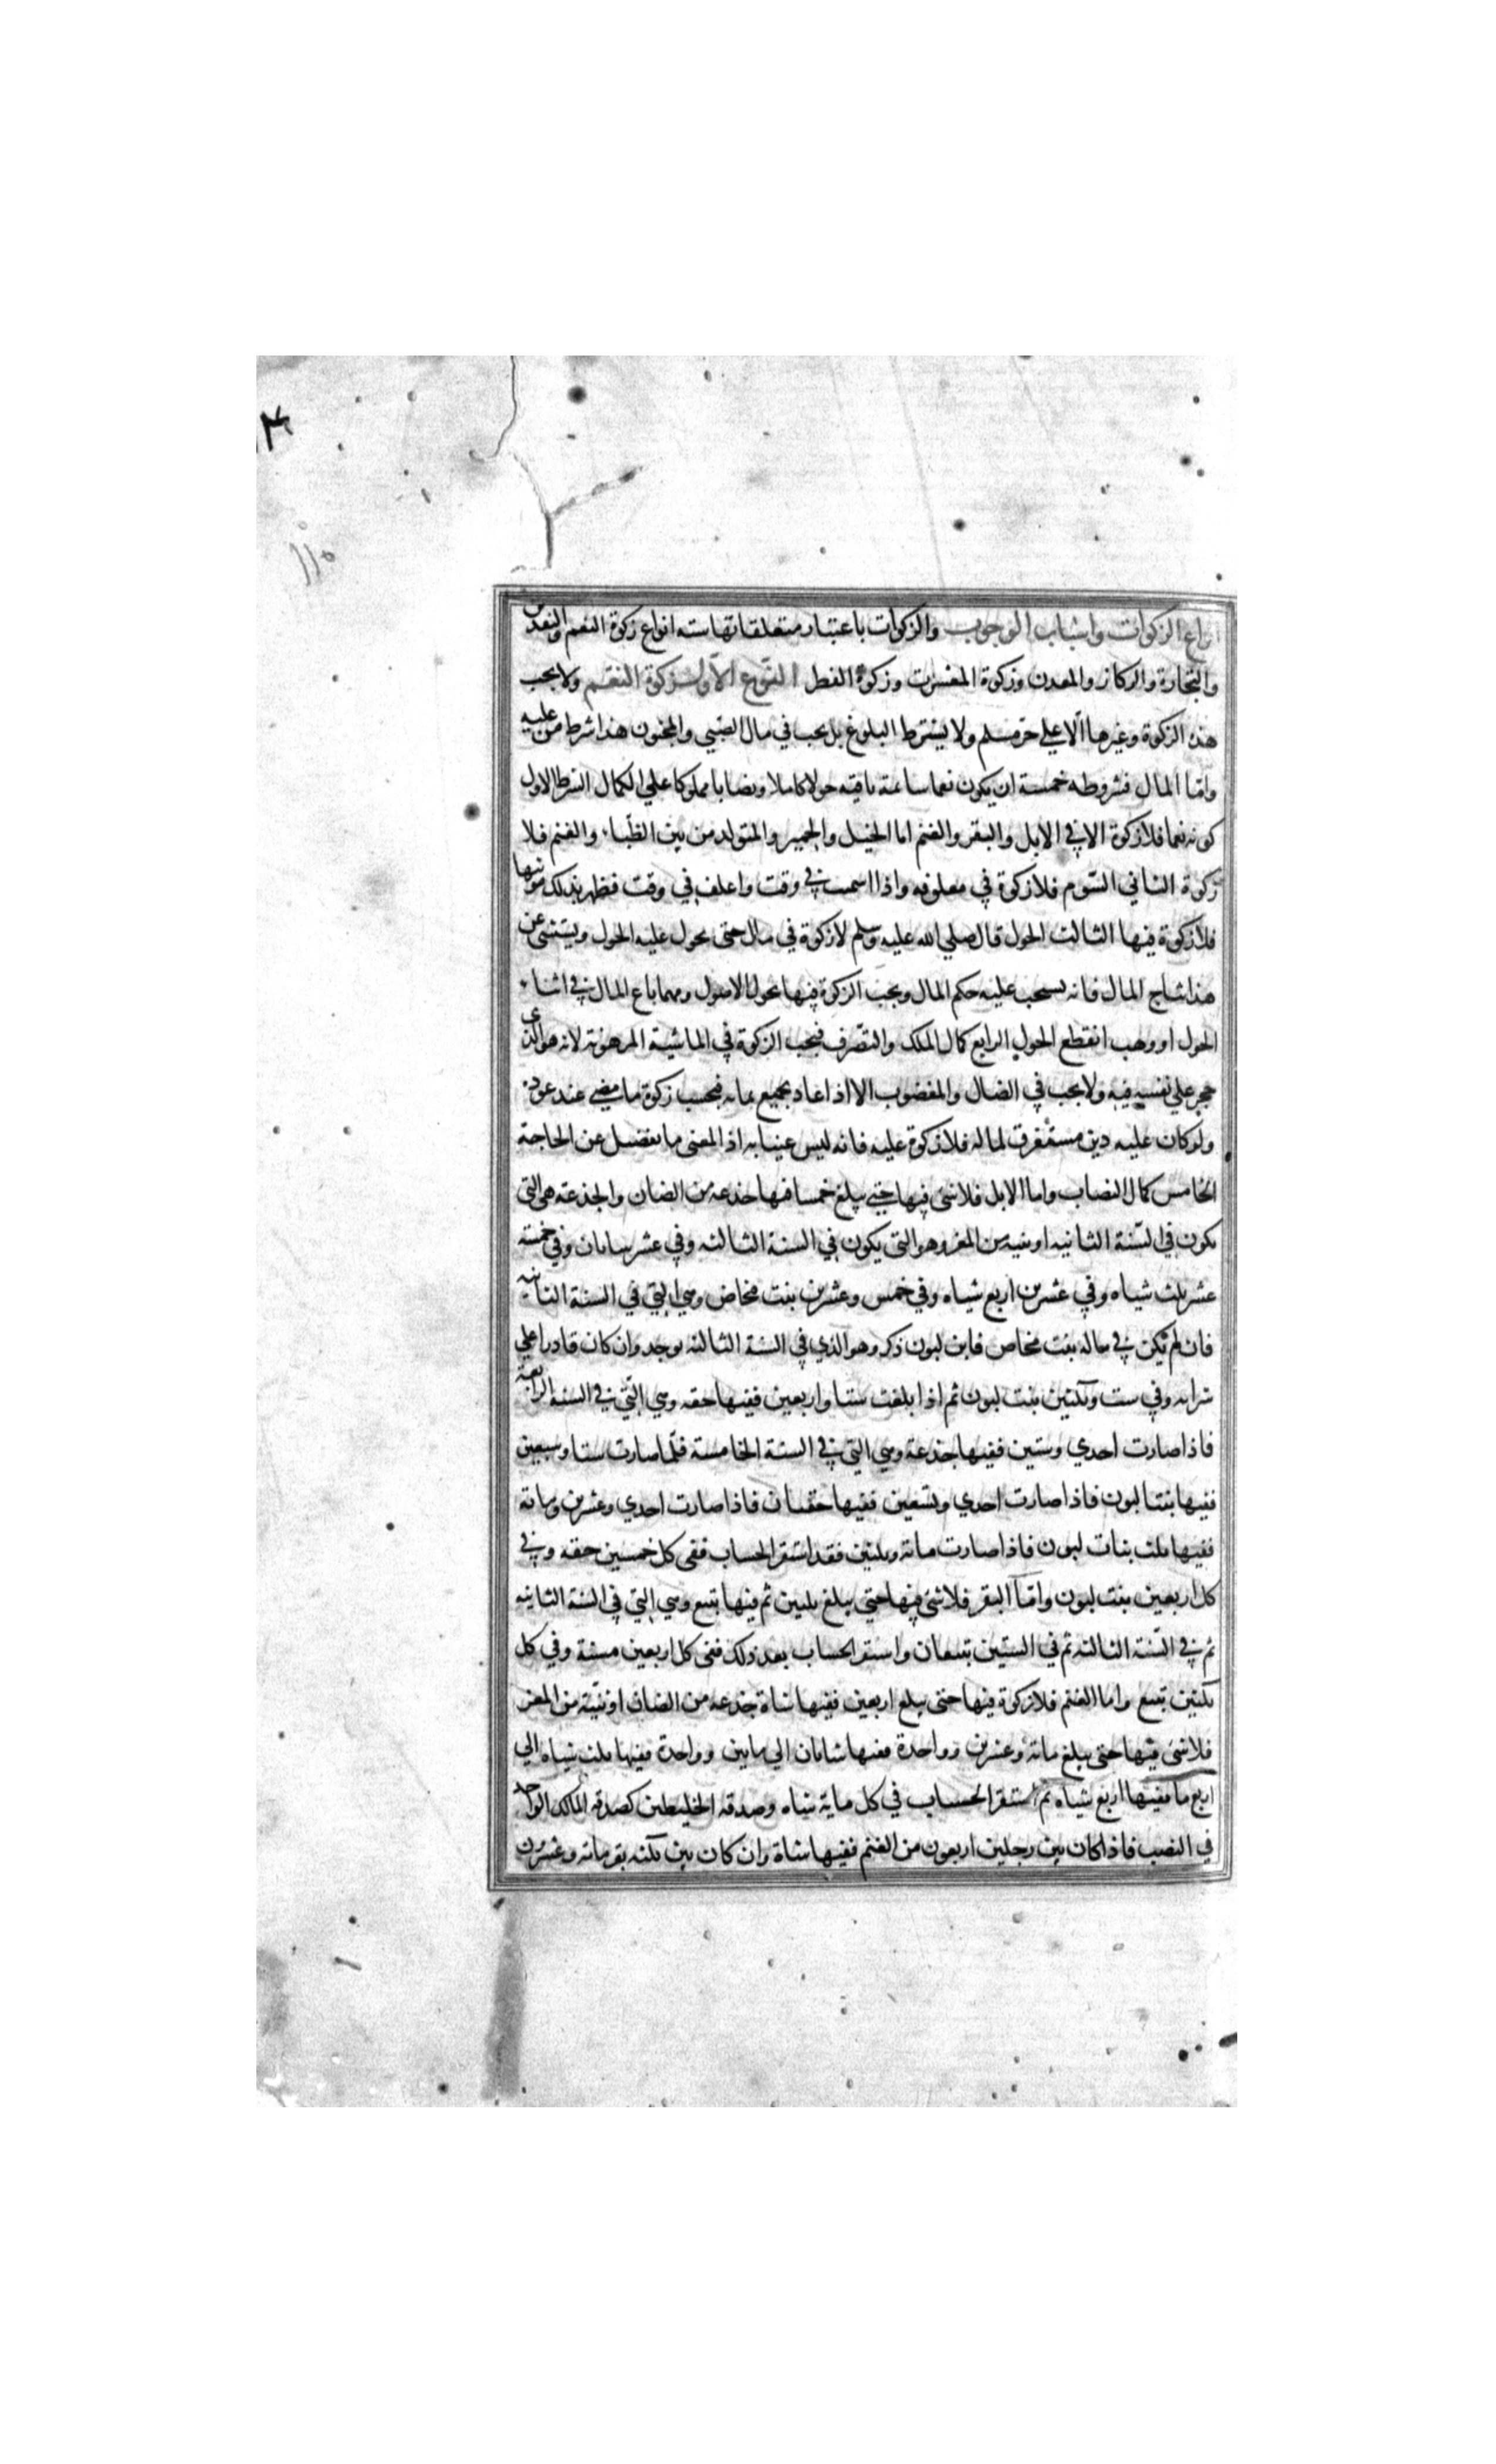 انواع الزكوات واسباب الوجوب والزكوات باعتبار متعلقاتها سته انواع زكوة النعم والنقدين
والتجارة والركاز والمعدن وزكوة المعشرت وزكوة الفطر النوع الاول زكوة النعم ولا يجب
هذه الزكوة وغيرها الا علي حر مسلم ولا يشترط البلوغ بل يجب في مال الصبي والمجنون هذا شرط من عليه
واما المال فشروطه خمسة ان يكون نعما سائمة باقيه حولا كاملا ونصابا مملوكا علي الكمال الشرط الاول
كونه نعما فلا زكوة الا في الابل والبقر والغنم اما الخيل والحمير والمتولد من بين الظباء والغنم فلا
زكوة الثاني السوم فلا زكوة في معلوفه واذا اسمت في وقت واعلف في وقت فظهر بذلك مونتها
فلا زكوة فيها الثالث الحول قال صلي الله عليه وسلم لا زكوة في مال حتى يحول عليه الحول ويستثني عن
هذا نتاج المال فانه يسحب عليه حكم المال ويجب الزكوة فيها بحول الاصول ومهما باع المال في اثناء
الحول او وهب انقطع الحول الرابع كمال الملك والتصرف فيجب الزكوة في الماشية المرهونة لانه هو الذي
حجر علي نفسه فيه ولا يجب في الضال والمغضوب الا اذا عاد بجميع نمائه فيجب زكوة ما مضي عند عوده
ولو كان عليه دين مستغرق لماله فلا زكوة عليه فانه ليس غنيا به اذ المعنى ما يفضل عن الحاجة
الخامس كمال النصاب واما الابل فلا شئ فيها حتي يبلغ خمسا فيها جذعه من الضان والجذعة هي التي
يكون في السنة الثانيه او ثنيه من المعز وهو التي يكون في السنة الثالثه وفي عشر ساتان وفي خمسة
عشر ثلث شياه وفي عشرين اربع شياه وفي خمس وعشرين بنت مخاض وهي التي في السنة الثانيه
فان لم تكن في ماله بنت مخاص فابن لبون ذكر وهو الذي في السنة الثالثه يوجد وان كان قادرا علي
شرائه وفي ست وثلثين بنت لبون ثم اذا بلغت ستا واربعين ففيها حقه وهي التي في السنة الرابعة
فاذا صارت احدي وستين ففيها جذعة وهي التي في السنة الخامسة فلما صارت ستا وسبعين
ففيها بنتا لبون فاذا صارت احدي وتسعين ففيها حقتان فاذا صارت احدي وعشرين ومائة
ففيها ثلث بنات لبون فاذا صارت مائة وثلثين فقد استقر الحساب ففي كل خمسين حقه وفي
كل اربعين بنت لبون واما البقر فلا شئ فيها حتى يبلغ ثلثين ثم فيها تبيع وهي التي في السنة الثانيه
ثم في السنة الثالثه ثم في الستين تبيعان واستقر الحساب بعد ذلك ففي كل اربعين مسنة وفي كل
ثلثين تبيع واما الغنم فلا زكوة فيها حتى يبلغ اربعين ففيها شاة جذعه من الضان او ثنية من المعز
فلا شئ فيها حتى يبلغ مائة وعشرين وواحدة ففيها شاتان الي مايتين وواحدة ففيها ثلث شياه الي
اربع ما ففيها اربع شياه ثم استقر الحساب في كل ماية شاه وصدقه الخليطين كصدقه المالك الواحد
في النصب فاذا كان بين رجلين اربعون من الغنم ففيها شاة وان كان بين ثلثه بقر مائه وعشرون